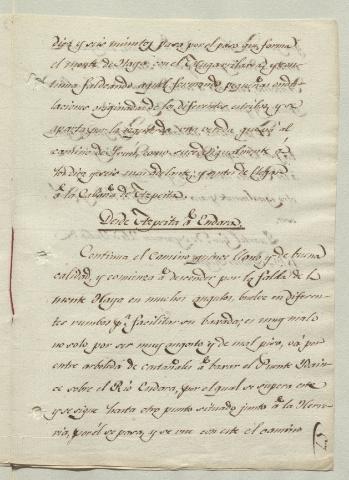 diez y seis minutos pasa por el paso que forma
el monte de Haya, con el
tinua faldeando aquel formando pequeñas ondu
laciones originadas de los diferentes estribos, y se
aparta por la izquierda una vereda que va al
camino de Irún, como sucede igualmente a
los diez y seis mas adelante; y antes de llegar
a la Cabaña de Azpeita.
Desde Azpeita a Endara.
Continua el Camino llano, y de buena
calidad, y comienza a descender por la falda de la
monte Haya en muchos angulos, bueltas en diferen-
tes rumbos pa facilitar su baxada; es muy malo
no solo por ser muy angosto y de mal piso, vá por
entre arboleda de castañales a baxar el Puente
se sobre el Rio Endara, por el qual se supera este
y se sigue hasta otro punto situado junto a la Herre-
ria, por el se pasa, y se une con este el camino